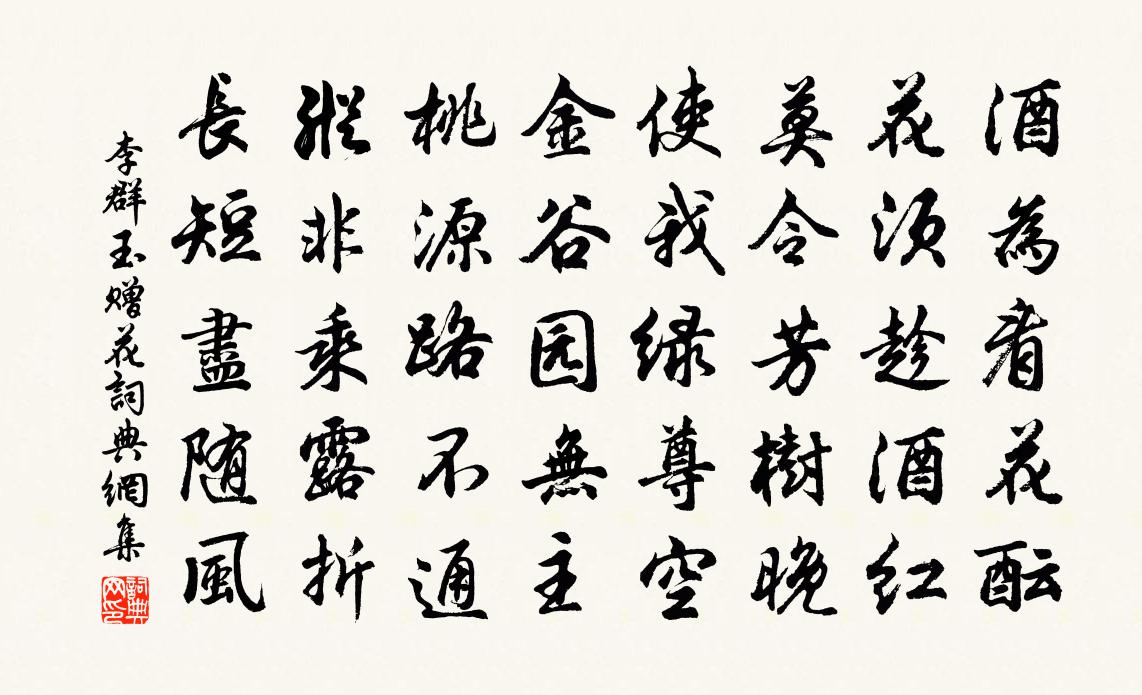 酒為看花酝
花须趁酒红
莫令芳樹晚
使我绿尊空
金谷园無主
桃源路不通
縱非乘露折
長短盡随風
李群玉赠花詞典網集
詞典网印